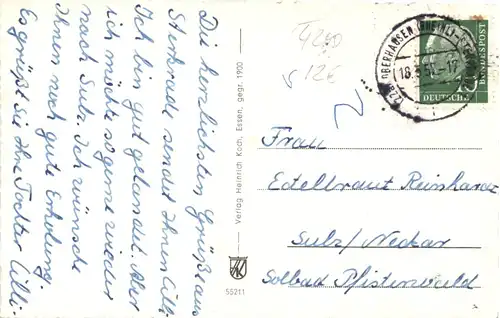 Die herzlichsten Grüße aus
Sterkrade sendet Ihnen Cilli
Ich bin gut gelandet. Aber
ich möchte so gerne wieder
nach Sulz. Ich wünsche
Ihnen noch gute Erholung
Es grüßt Sie Ihre Tochter Cilli.
Verlag Heinrich Koch, Essen, gegr. 1900
55211
4200
12€
(22a) OBERHAUSEN (RHEINL)-STERKRADE
DEUTSCHE
BUNDESPOST
Frau
Edeltraut Reinhardt
Sulz/Neckar
Solbad Pfisterwald